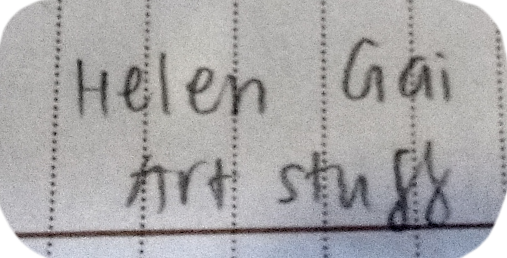 Helen Gai
Art stuff